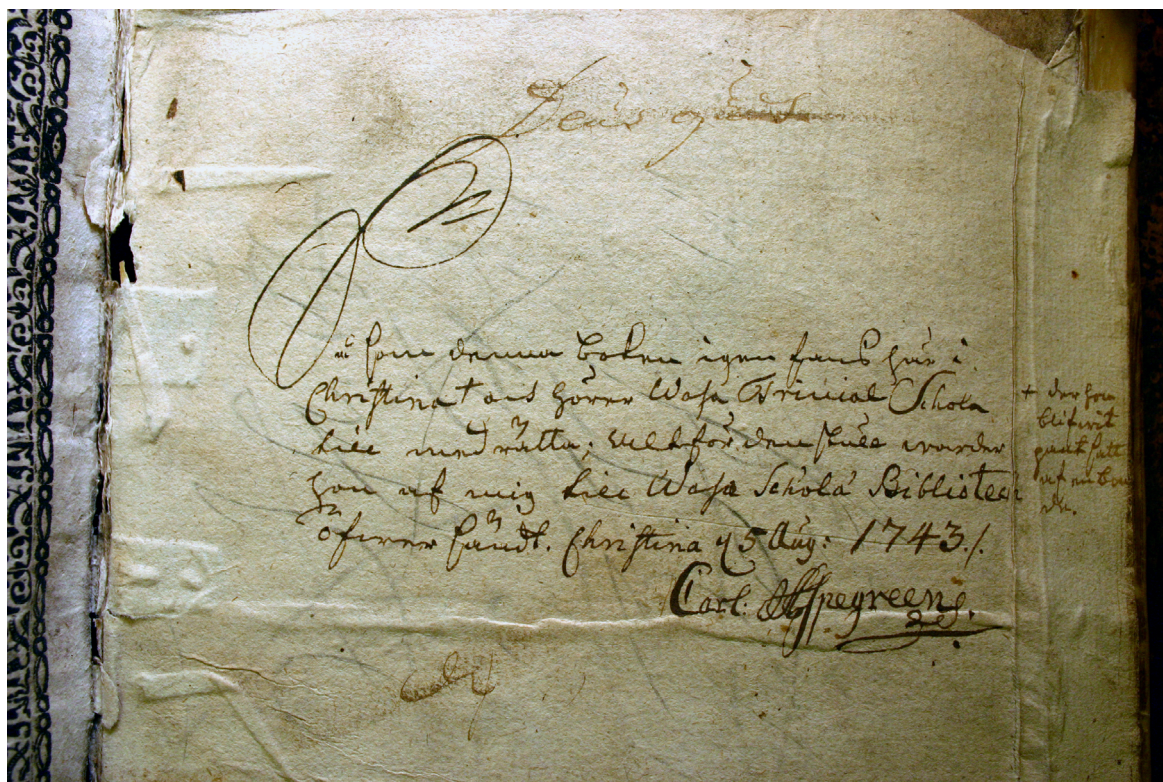 Deus
Så som denna boken igen fans här i
Christina + och hörer Wasa Trivial Schola
till med rätta; altför den skull warder
hon af mig till Wasa Schola Bibliotec
öfwer sändt. Christina d 5 Aug: 1743./.
Carl: Aspegreen
+ der hon
blifwit
pantsatt
af en bon
de.